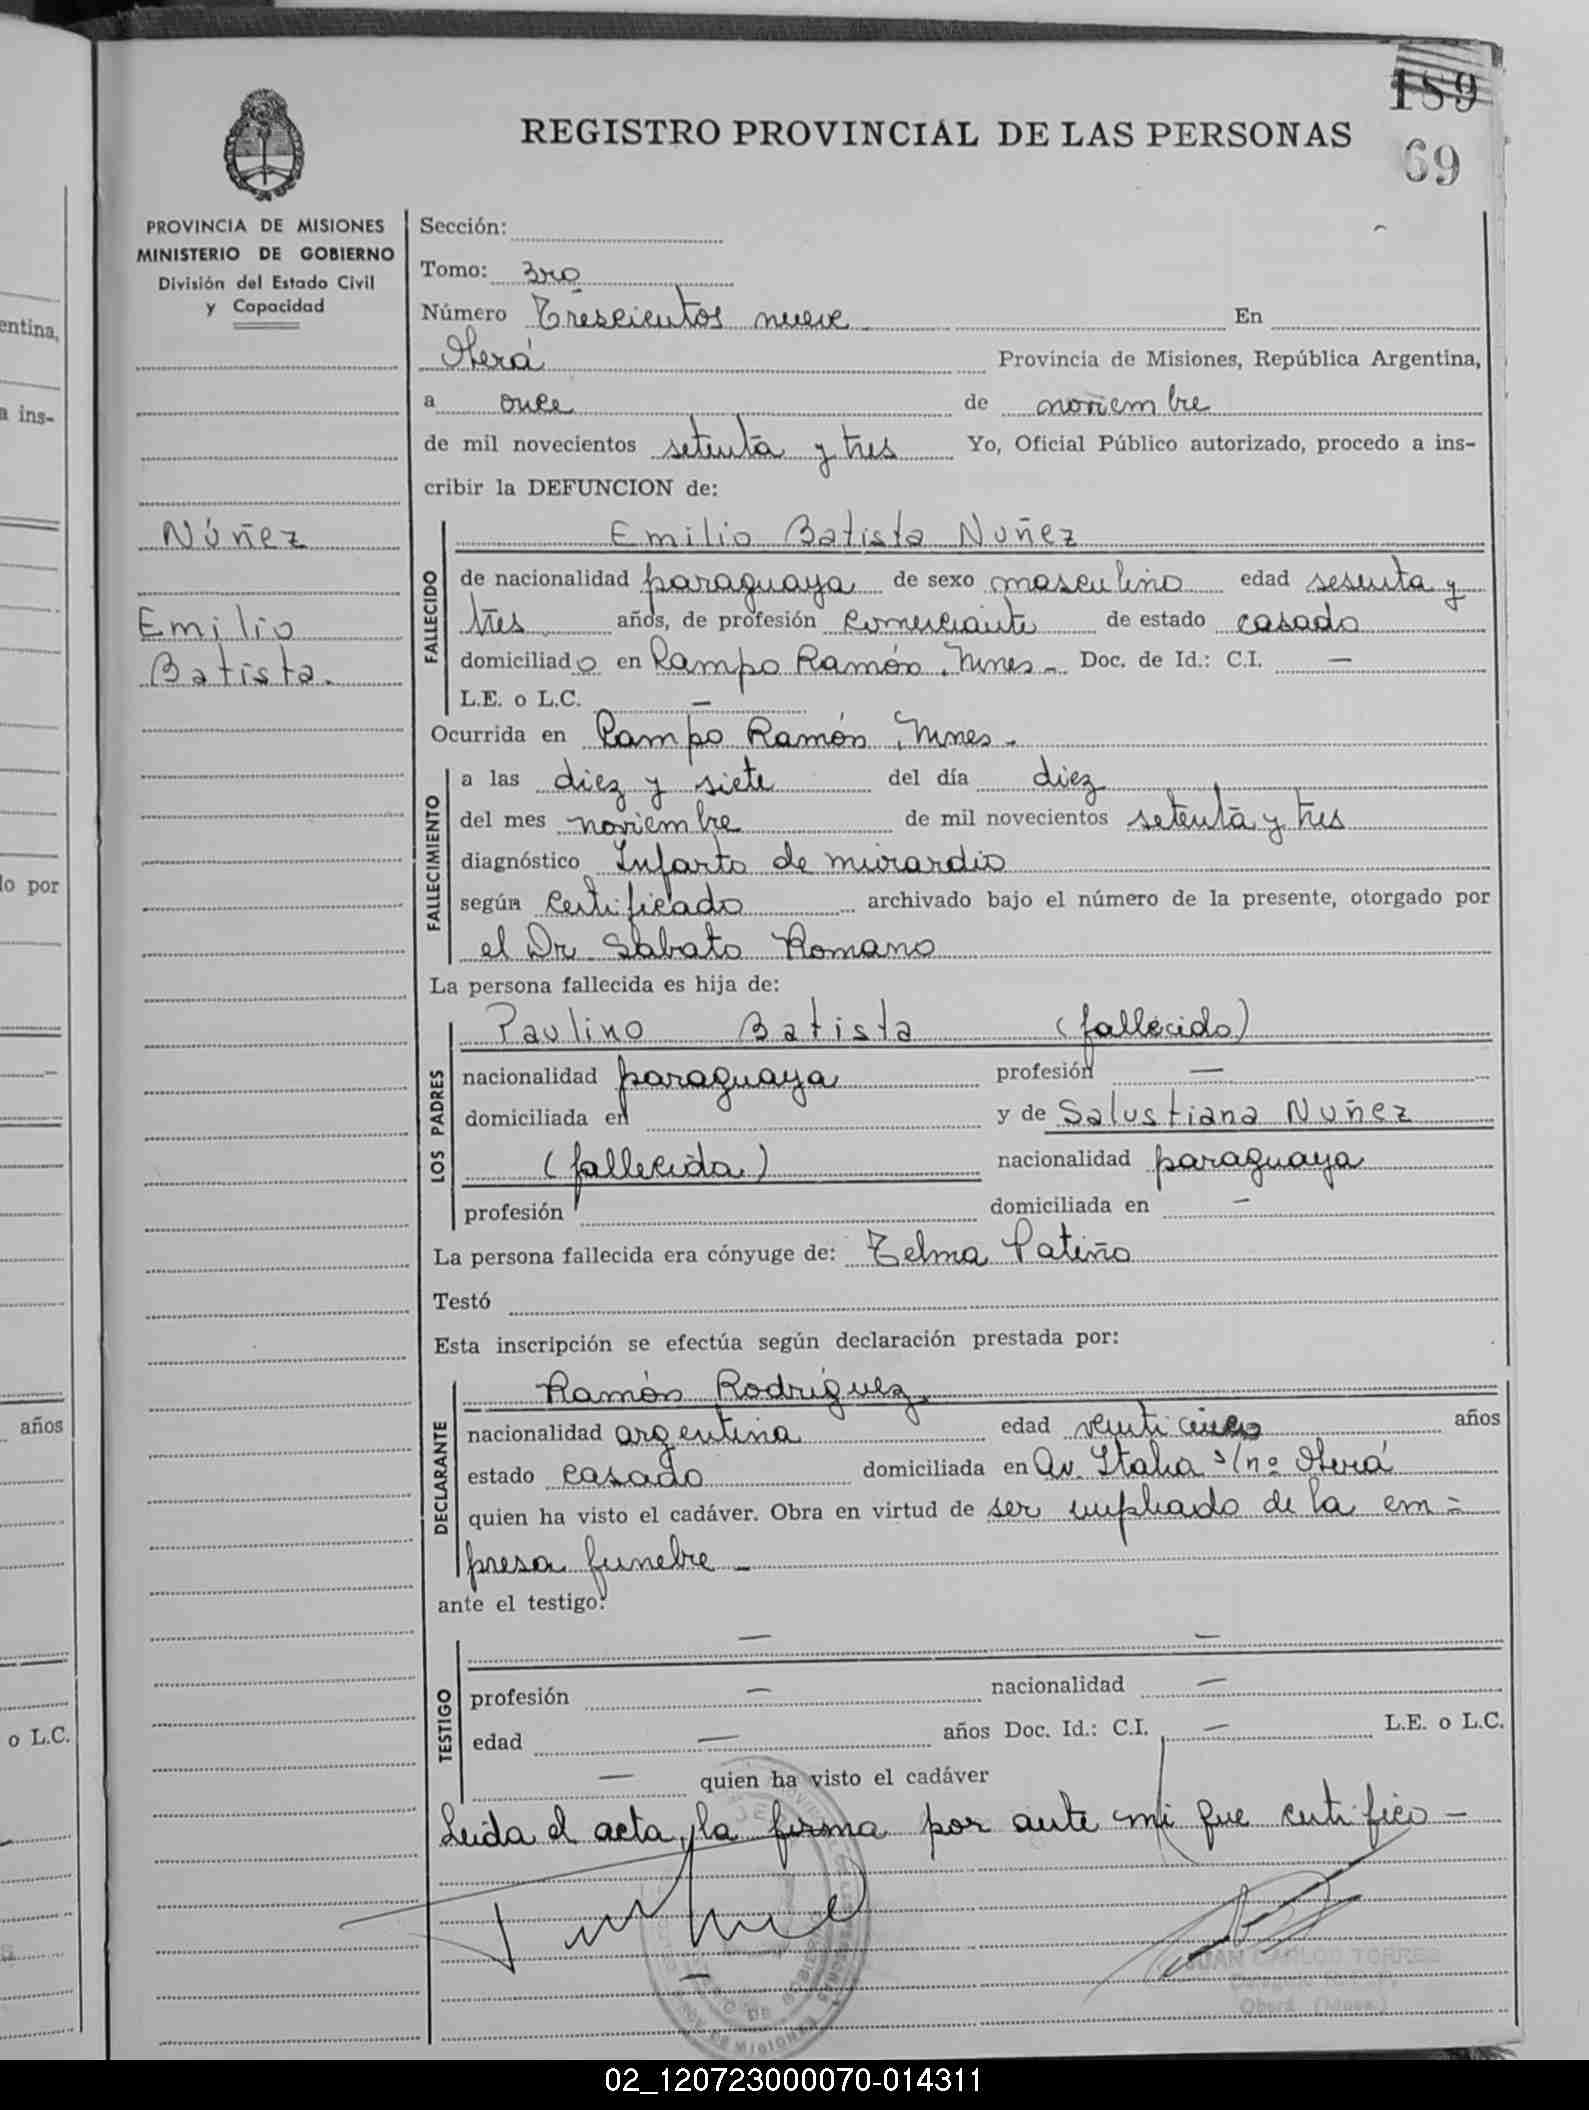 189
REGISTRO PROVINCIAL DE LAS PERSONAS
69
PROVINCIA DE MISIONES
MINISTERIO DE GOBIERNO
División del Estado Civil
y Capacidad
Núñez
Emilio
Batista.
Sección:
Tomo: 3ro
Número Trescientos nueve En
Oberá Provincia de Misiones, República Argentina,
a once de noviembre
de mil novecientos setenta y tres Yo, Oficial Público autorizado, procedo a ins-
cribir la DEFUNCION de:
FALLECIDO
Emilio Batista Nuñez
de nacionalidad paraguaya de sexo masculino edad sesenta y
tres años, de profesión comerciante de estado casado
domiciliado en Campo Ramón, Mnes- Doc. de Id.: C.I. —
L.E. o L.C. —
Ocurrida en Campo Ramón, Mnes-
FALLECIMIENTO
a las diez y siete del día diez
del mes noviembre de mil novecientos setenta y tres
diagnóstico Infarto de miocardio
según certificado archivado bajo el número de la presente, otorgado por
el Dr. Sabato Romano
La persona fallecida es hija de:
LOS PADRES
Paulino Batista (fallecido)
nacionalidad paraguaya profesión —
domiciliada en y de Salustiana Nuñez
(fallecida) nacionalidad paraguaya
profesión domiciliada en —
La persona fallecida era cónyuge de: Telma Patiño
Testó
Esta inscripción se efectúa según declaración prestada por:
DECLARANTE
Ramón Rodríguez
nacionalidad argentina edad veinticinco años
estado casado domiciliada en Av. Italia s/nº Oberá
quien ha visto el cadáver. Obra en virtud de ser empleado de la em=
presa funebre —
ante el testigo:
TESTIGO
— —
profesión — nacionalidad —
edad — años Doc. Id.: C.I. — L.E. o L.C.
— quien ha visto el cadáver
Leida el acta, la firma por ante mi que certifico —
JUAN CARLOS TORRES
Oberá (Mnes.)
entina,
a ins-
lo por
años
o L.C.
02_120723000070-014311